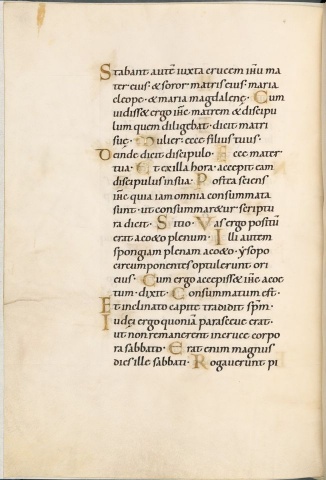 Stabant autẽ iuxta crucem ih̃u ma
ter eius· & soror matris eius· maria
cleope· & maria magdalenę· Cum
uidiss& ergo ih̃c matrem & discipu
lum quem diligebat· dicit matri
suę· Mulier· ecce filius tuus·
Deinde dicit discipulo· Ecce mater
tua· Et exilla hora· accepit eam
discipulus insua· Postea sciens
ih̃c quia iam omnia consummata
sunt· ut consummar&ur scriptu
ra dicit· Sitio· Vas ergo positũ
erat ac&o plenum· Illi autem
spongiam plenam ac&o· ysopo
circumponentes optulerunt ori
eius· Cum ergo accepiss& ih̃c acoc
tum· dixit· Consummatum est·
Et inclinato capite tradidit sp̃m·
Iudęi ergo quoniã parasceue erat·
ut non remanerent incruce corpo
ra sabbato· Erat enim magnus
dies ille sabbati· Rogauerunt pi